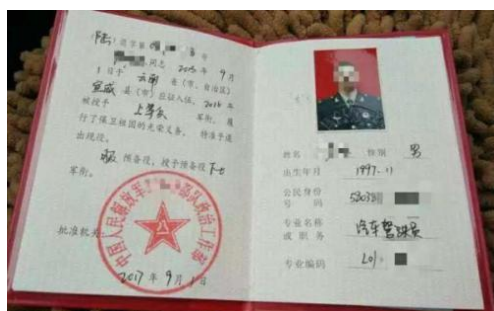 退字第 号
同志 2015 年 9 月
1 日于 云南 省（市、自治区）
宣威 县（市）应征入伍，2016 年
被授予 上等兵 军衔。履
行了保卫祖国的光荣义务，特准予退
出现役。
服 预备役，授予预备役 下士
军衔。
批准机关
中国人民解放军 部队政治工作部
2017 年 9 月 1 日
姓名 性别 男
出生年月 1997.11
公民身份
号码 53038
专业名称
或职务 汽车驾驶员
专业编码 201